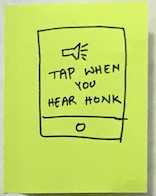 TAP WHEN
YOU
HEAR HONK